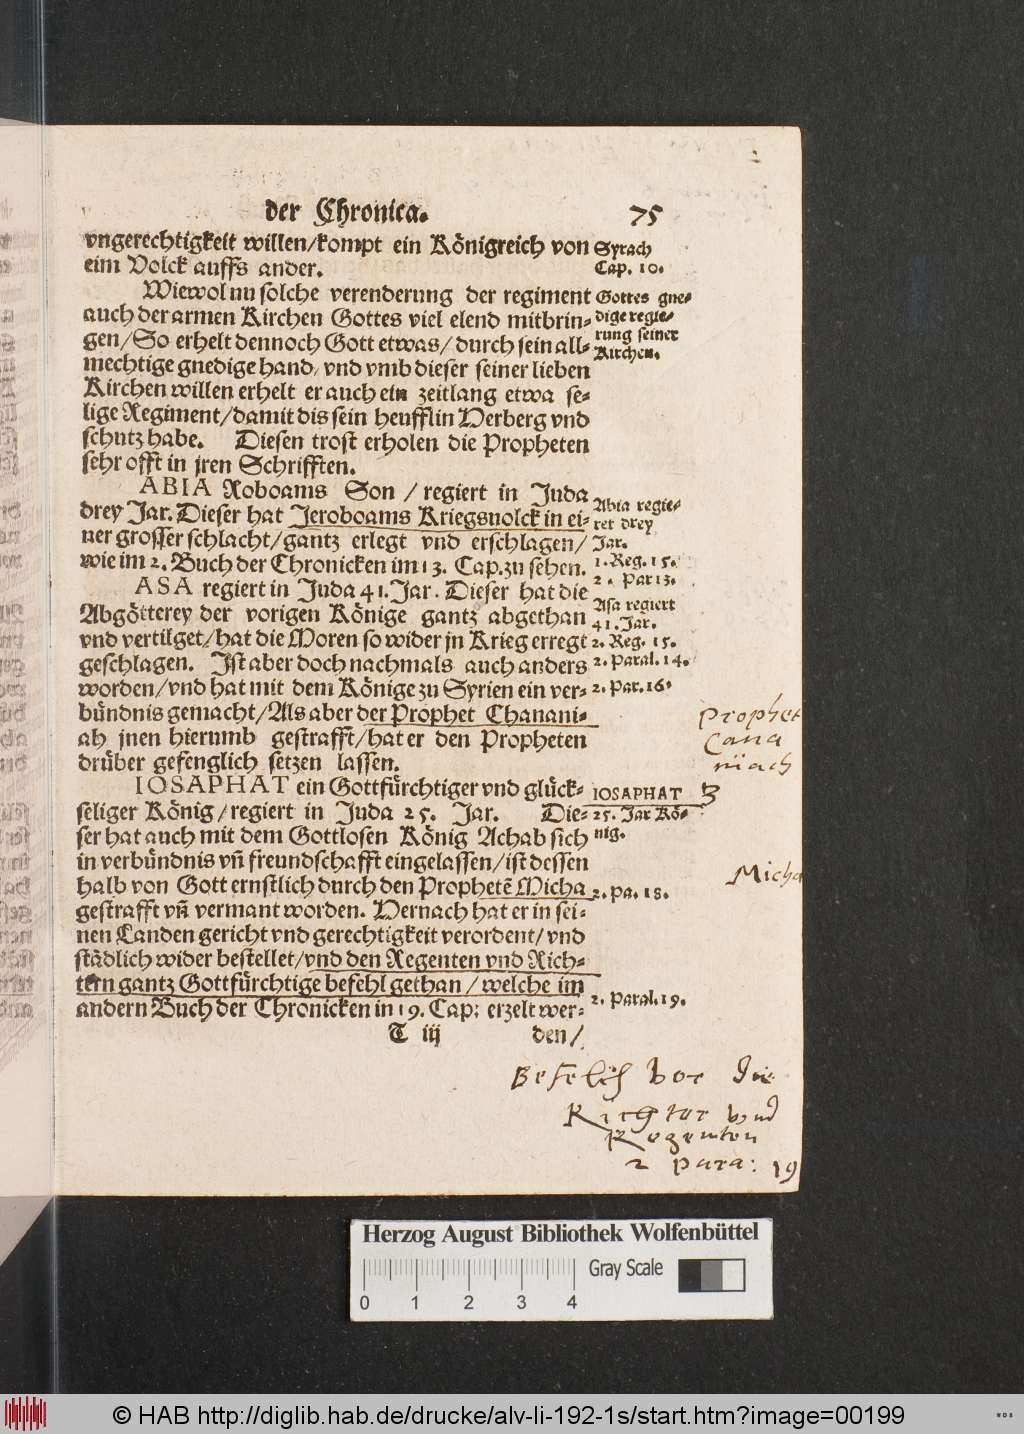 der Chronica. 75
vngerechtigkeit willen/kompt ein Königreich von
eim Volck auffs ander.
Syrach
Cap. 10.
Wiewol nu solche verenderung der regiment
auch der armen Kirchen Gottes viel elend mitbrin-
gen/So erhelt dennoch Gott etwas/durch sein all-
mechtige gnedige hand/vnd vmb dieser seiner lieben
Kirchen willen erhelt er auch ein zeitlang etwa se-
lige Regiment/damit dis sein heufflin Herberg vnd
schutz habe. Diesen trost erholen die Propheten
sehr offt in jren Schrifften.
Gottes gne-
dige regie-
rung seiner
Kirchen.
ABIA Roboams Son / regiert in Juda
drey Jar. Dieser hat Jeroboams Kriegsuolck in ei-
ner grosser schlacht/gantz erlegt vnd erschlagen/
wie im 2. Buch der Chronicken im 13. Cap. zu sehen.
Abia regie-
ret drey
Jar.
1. Reg. 15.
2. Par 13.
ASA regiert in Juda 41. Jar. Dieser hat die
Abgötterey der vorigen Könige gantz abgethan
vnd vertilget/hat die Moren so wider jn Krieg erregt
geschlagen. Jst aber doch nachmals auch anders
worden/vnd hat mit dem Könige zu Syrien ein ver-
bündnis gemacht/Als aber der Prophet Chanani-
ah jnen hierumb gestrafft/hat er den Propheten
drüber gefenglich setzen lassen.
Asa regiert
41. Jar.
2. Reg. 15.
2. Paral. 14.
2. Par. 16.
Prophet
Cana
niach
IOSAPHAT ein Gottfürchtiger vnd glück-
seliger König/regiert in Juda 25. Jar. Die-
ser hat auch mit dem Gottlosen König Achab sich
in verbündnis vñ freundschafft eingelassen/ist dessen
halb von Gott ernstlich durch den Prophetẽ Micha
gestrafft vñ vermant worden. Hernach hat er in sei-
nen Landen gericht vnd gerechtigkeit verordent/vnd
städlich wider bestellet/vnd den Regenten vnd Rich-
tern gantz Gottfürchtige befehl gethan / welche im
andern Buch der Chronicken in 19. Cap: erzelt wer-
IOSAPHAT
25. Jar Kö-
nig.
3
Micha
2. Pa. 18.
2. Paral. 19.
T iij den/
Befelich vor die
Richter vnd
Regenten
2 Para: 19
Herzog August Bibliothek Wolfenbüttel
Gray Scale
0 1 2 3 4
© HAB http://diglib.hab.de/drucke/alv-li-192-1s/start.htm?image=00199